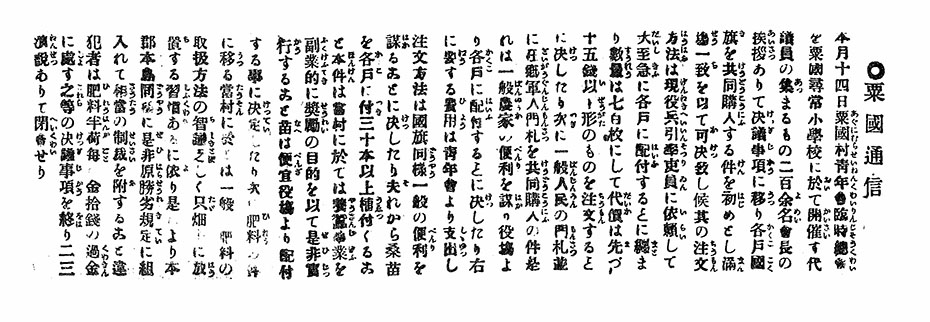 ◎粟國通信
本月十四日粟國村靑年會臨時總會
を粟國尋常小學校に於て開催す代
議員の集まるもの二百余名會長の
挨拶ありて決議事項に移り各戶國
旗を共同購入する件を初めとし滿
塲一致を以て可決致し候其の注文
方法は現役兵引率吏員に依賴して
大至急に各戶に配付することに纏ま
り數量は七百枚にして代價は先づ
十五錢以上形のものを注文すると
に決したり次に一般人民の門札並
に在鄕軍人門札を共同購入の件是
れは一般農家の便利を謀り役塲よ
り各戶に配付するとに決したり右
に要する費用は靑年會より支出し
注文方法は國旗同樣一般の便利を
謀ることに決したり夫れから桑苗
を各戶に付三十本以上植付くるこ
と本件は當村に於ては養蠶業を
副業的に奬勵の目的を以て是非實
行すること苗は便宜役塲より配付
する事に決定したり次に肥料の件
に移る當村に於ては一般肥料の
取扱方法の智識乏しく只畑に放
置する習慣あるに依り是により本
郡本島同樣に是非原勝劣規定に組
入れて相當の制裁を附すること違
犯者は肥料半荷每金拾錢の過金
に處す之等の決議事項を終り二三
演說ありて閉會せり